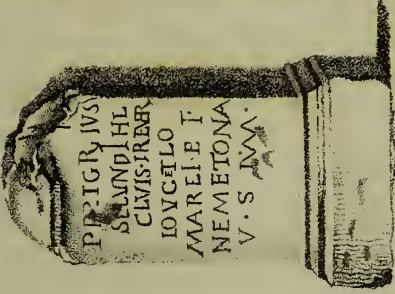 PEREGRINVS
SECVNDI FIL
CIVIS TREVER
LOVCETIO
MARTI ET
NEMETONA
V·S·L·M